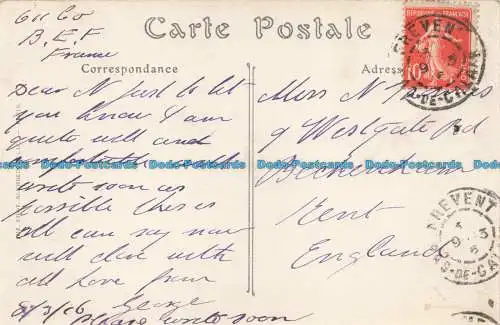 611 Co
B.E.F
France
Carte Postale
Correspondance
Adresse
Dear N just to let
you know I am
quite well and
comfortable will
write soon as
possible this is
all can say now
will close with
all love from
George
8/3/16
please write soon
Miss N
9 Westgate Rd
Beckenham
Kent
England
REPUBLIQUE FRANCAISE
10
FREVENT
PAS-DE-CALAIS
FREVENT
9 3
PAS-DE-CALAIS
Dodo-Postcards Dodo-Postcards Dodo-Postcards Dodo-Postcards Dodo-Postcards Dodo-Postcards